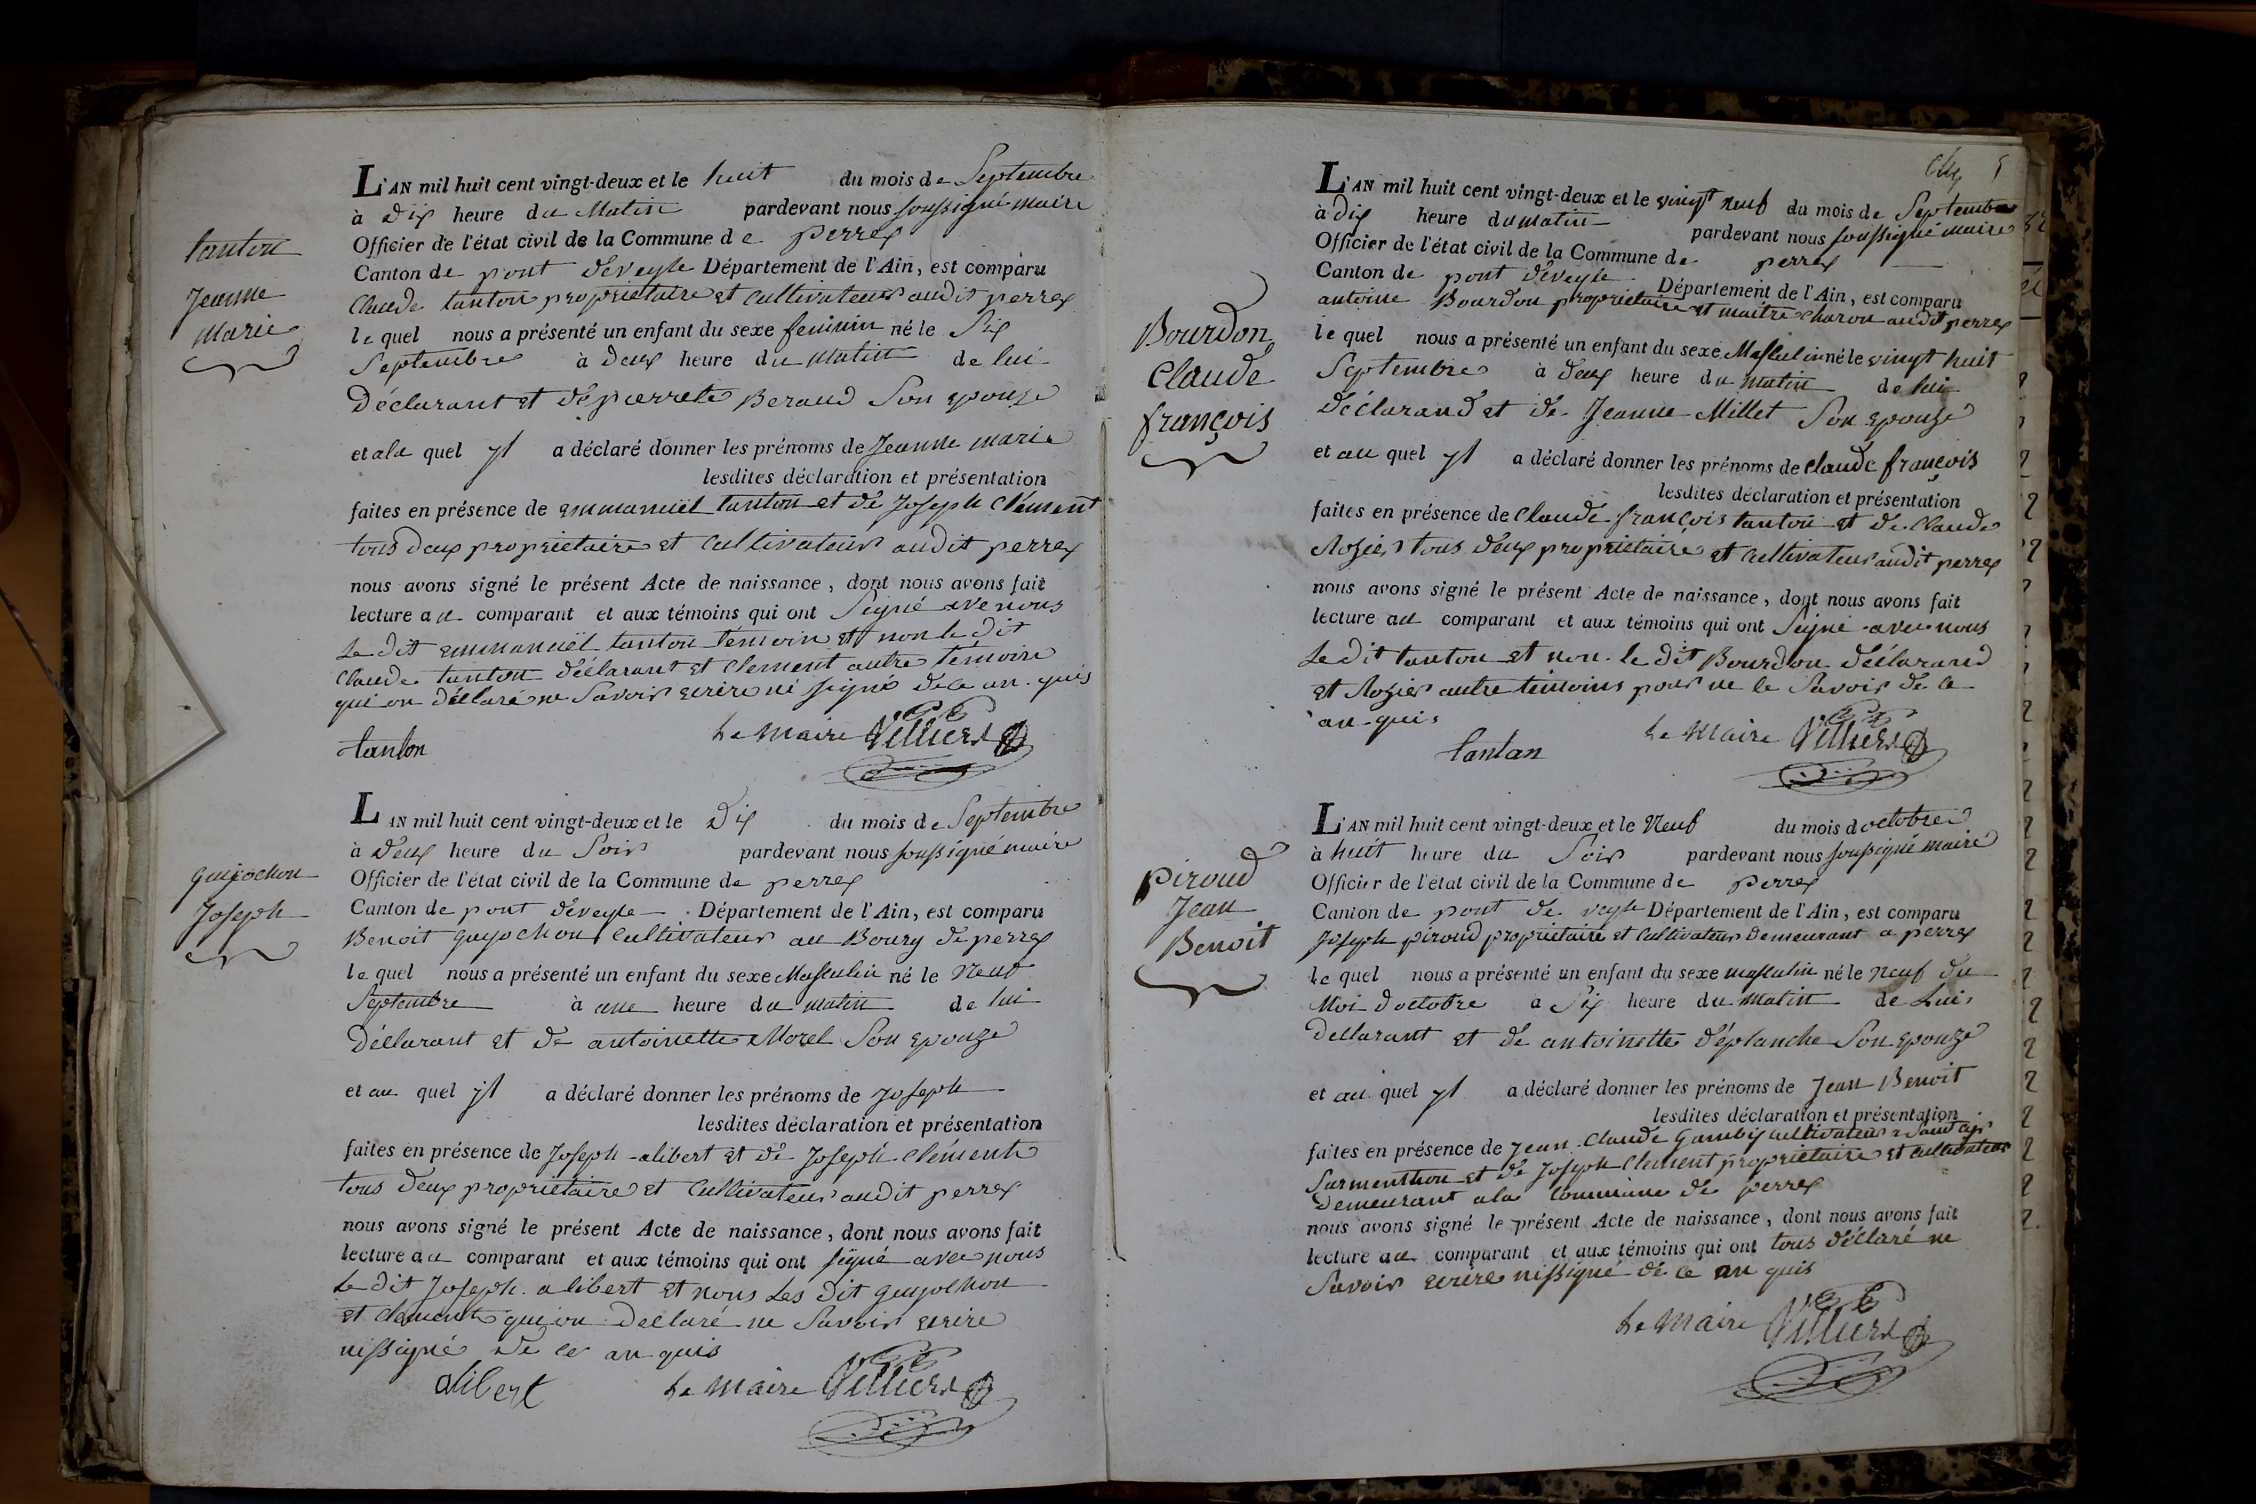 L'AN mil huit cent vingt-deux et le huit du mois de Septembre
à Dix heure du Matin pardevant nous soussigné maire
Officier de l'état civil de la Commune de perrex
Canton de pont déveyle Département de l'Ain, est comparu
Claude tanton propriétaire et cultivateur audit perrex
le quel nous a présenté un enfant du sexe feminin né le Six
Septembre à deux heure du matin de lui
Déclarant et de pierrete Beraud Son epouze
et a la quel yl a déclaré donner les prénoms de Jeanne marie
lesdites déclaration et présentation
faites en présence de emmanuël tanton et de Joseph Clément
tous deux propriétaire et cultivateur audit perrex
nous avons signé le présent Acte de naissance, dont nous avons fait
lecture au comparant et aux témoins qui ont Signé ave nous
Le dit emmanuël tanton témoin et non le dit
Claude tanton déclarant et Clement autre témoin
qui on déllaré ne Savoir ecrire ni signé de ce an-quis
tanton Le Maire Villierd
tanton
Jeanne
Marie
L'AN mil huit cent vingt-deux et le Dix du mois de Septembre
à deux heure du Soir pardevant nous soussigné maire
Officier de l'état civil de la Commune de perrex
Canton de pont déveyle Département de l'Ain, est comparu
Benoit guyochon Cultivateur au Bourg de perrex
le quel nous a présenté un enfant du sexe Masculin né le Neuf
Septembre à une heure du matin de lui
Déllarant et de antoinette Morel Son epouze
et au quel yl a déclaré donner les prénoms de Joseph
lesdites déclaration et présentation
faites en présence de Joseph alibert et de Joseph Clément
tous deux propriétaire et Cultivateur audit perrex
nous avons signé le présent Acte de naissance, dont nous avons fait
lecture au comparant et aux témoins qui ont signé avec nous
Le dit Joseph alibert et nous Les dit guyochon
et Clement qui on Declaré ne Savoir ecrire
nissigné De ce an quis
alibert Le Maire Villierd
guyochon
Joseph
5
L'AN mil huit cent vingt-deux et le vingt neuf du mois de Septembre
à Dix heure du matin pardevant nous soussigné maire
Officier de l'état civil de la Commune de perrex
Canton de pont déveyle Département de l'Ain, est comparu
antoine Bourdon propriétaire et maitre charon audit perrex
le quel nous a présenté un enfant du sexe Masculin né le vingt huit
Septembre à deux heure du matin de lui
déclarand et de Jeanne Millet Son epouze
et au quel yl a déclaré donner les prénoms de claude françois
lesdites déclaration et présentation
faites en présence de Claude françois tanton et de Claude
Rozier tous deux propriétaire et cultivateur audit perrex
nous avons signé le présent Acte de naissance, dont nous avons fait
lecture au comparant et aux témoins qui ont Signé avec nous
Le dit tanton et non le dit Bourdon déélarand
et Rozier autre témoins pour ne le Savoir de ce
an-quis
tantan Le Maire Villierd
Bourdon
Claude
françois
L'AN mil huit cent vingt-deux et le Neuf du mois doctobre
à huit heure du Soir pardevant nous soussigné maire
Officier de l'état civil de la Commune de perrex
Canton de pont de veyle Département de l'Ain, est comparu
Joseph piroud propriétaire et Cultivateur Demeurant a perrex
le quel nous a présenté un enfant du sexe masculin né le neuf du
Moi doctobre a Six heure du matin de Lui
Déllarant et de antoinette déplanche Son epouze
et au quel yl a déclaré donner les prénoms de Jean Benoit
lesdites déclaration et présentation
faites en présence de Jean Claude Gambij cultivateur
Sarmenthon et de Joseph Clement propriétaire et cultivateur
Demeurant ala Commune de perrex
nous avons signé le présent Acte de naissance, dont nous avons fait
lecture au comparant et aux témoins qui ont tous déclaré ne
Savoir ecrire nissigné de ce an quis
Le Maire Villierd
piroud
Jean
Benoit